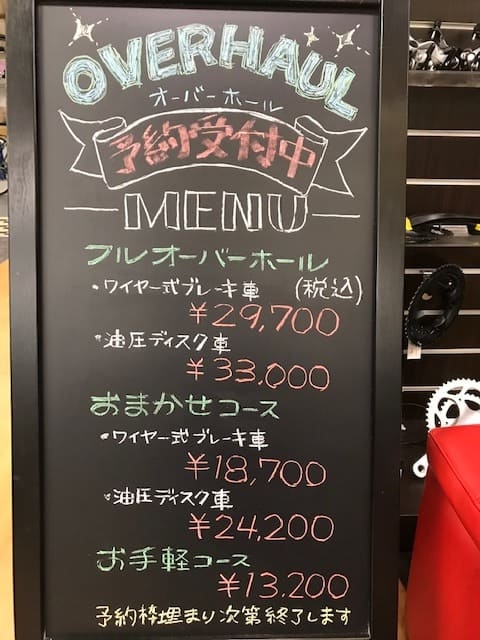 OVERHAUL
オーバーホール
予約受付中
MENU
フルオーバーホール
・ワイヤー式ブレーキ車 (税込)
¥29,700
・油圧ディスク車
¥33,000
おまかせコース
・ワイヤー式ブレーキ車
¥18,700
・油圧ディスク車
¥24,200
お手軽コース
¥13,200
予約枠埋まり次第終了します